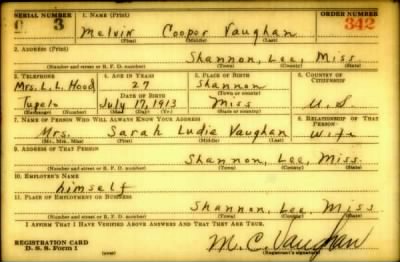 SERIAL NUMBER 1. NAME (Print) ORDER NUMBER
3 Melvin Cooper Vaughan 342
(First) (Middle) (Last)
2. ADDRESS (Print)
Shannon, Lee, Miss
(Number and street or R. F. D. number) (Town) (County) (State)
3. TELEPHONE 4. AGE IN YEARS 5. PLACE OF BIRTH 6. COUNTRY OF CITIZENSHIP
Mrs. L. L. Hood 27 Shannon
DATE OF BIRTH (Town or county)
Tupelo July 17, 1913 Miss U. S.
(Exchange) (Number) (Mo.) (Day) (Yr.) (State or country)
7. NAME OF PERSON WHO WILL ALWAYS KNOW YOUR ADDRESS 8. RELATIONSHIP OF THAT PERSON
Mrs. Sarah Ludie Vaughan Wife
(Mr., Mrs., Miss) (First) (Middle) (Last)
9. ADDRESS OF THAT PERSON
Shannon, Lee, Miss.
(Number and street or R. F. D. number) (Town) (County) (State)
10. EMPLOYER'S NAME
himself
11. PLACE OF EMPLOYMENT OR BUSINESS
Shannon, Lee, Miss
(Number and street or R. F. D. number) (Town) (County) (State)
I AFFIRM THAT I HAVE VERIFIED ABOVE ANSWERS AND THAT THEY ARE TRUE.
REGISTRATION CARD
D. S. S. Form 1 M. C. Vaughan
(Registrant's signature)